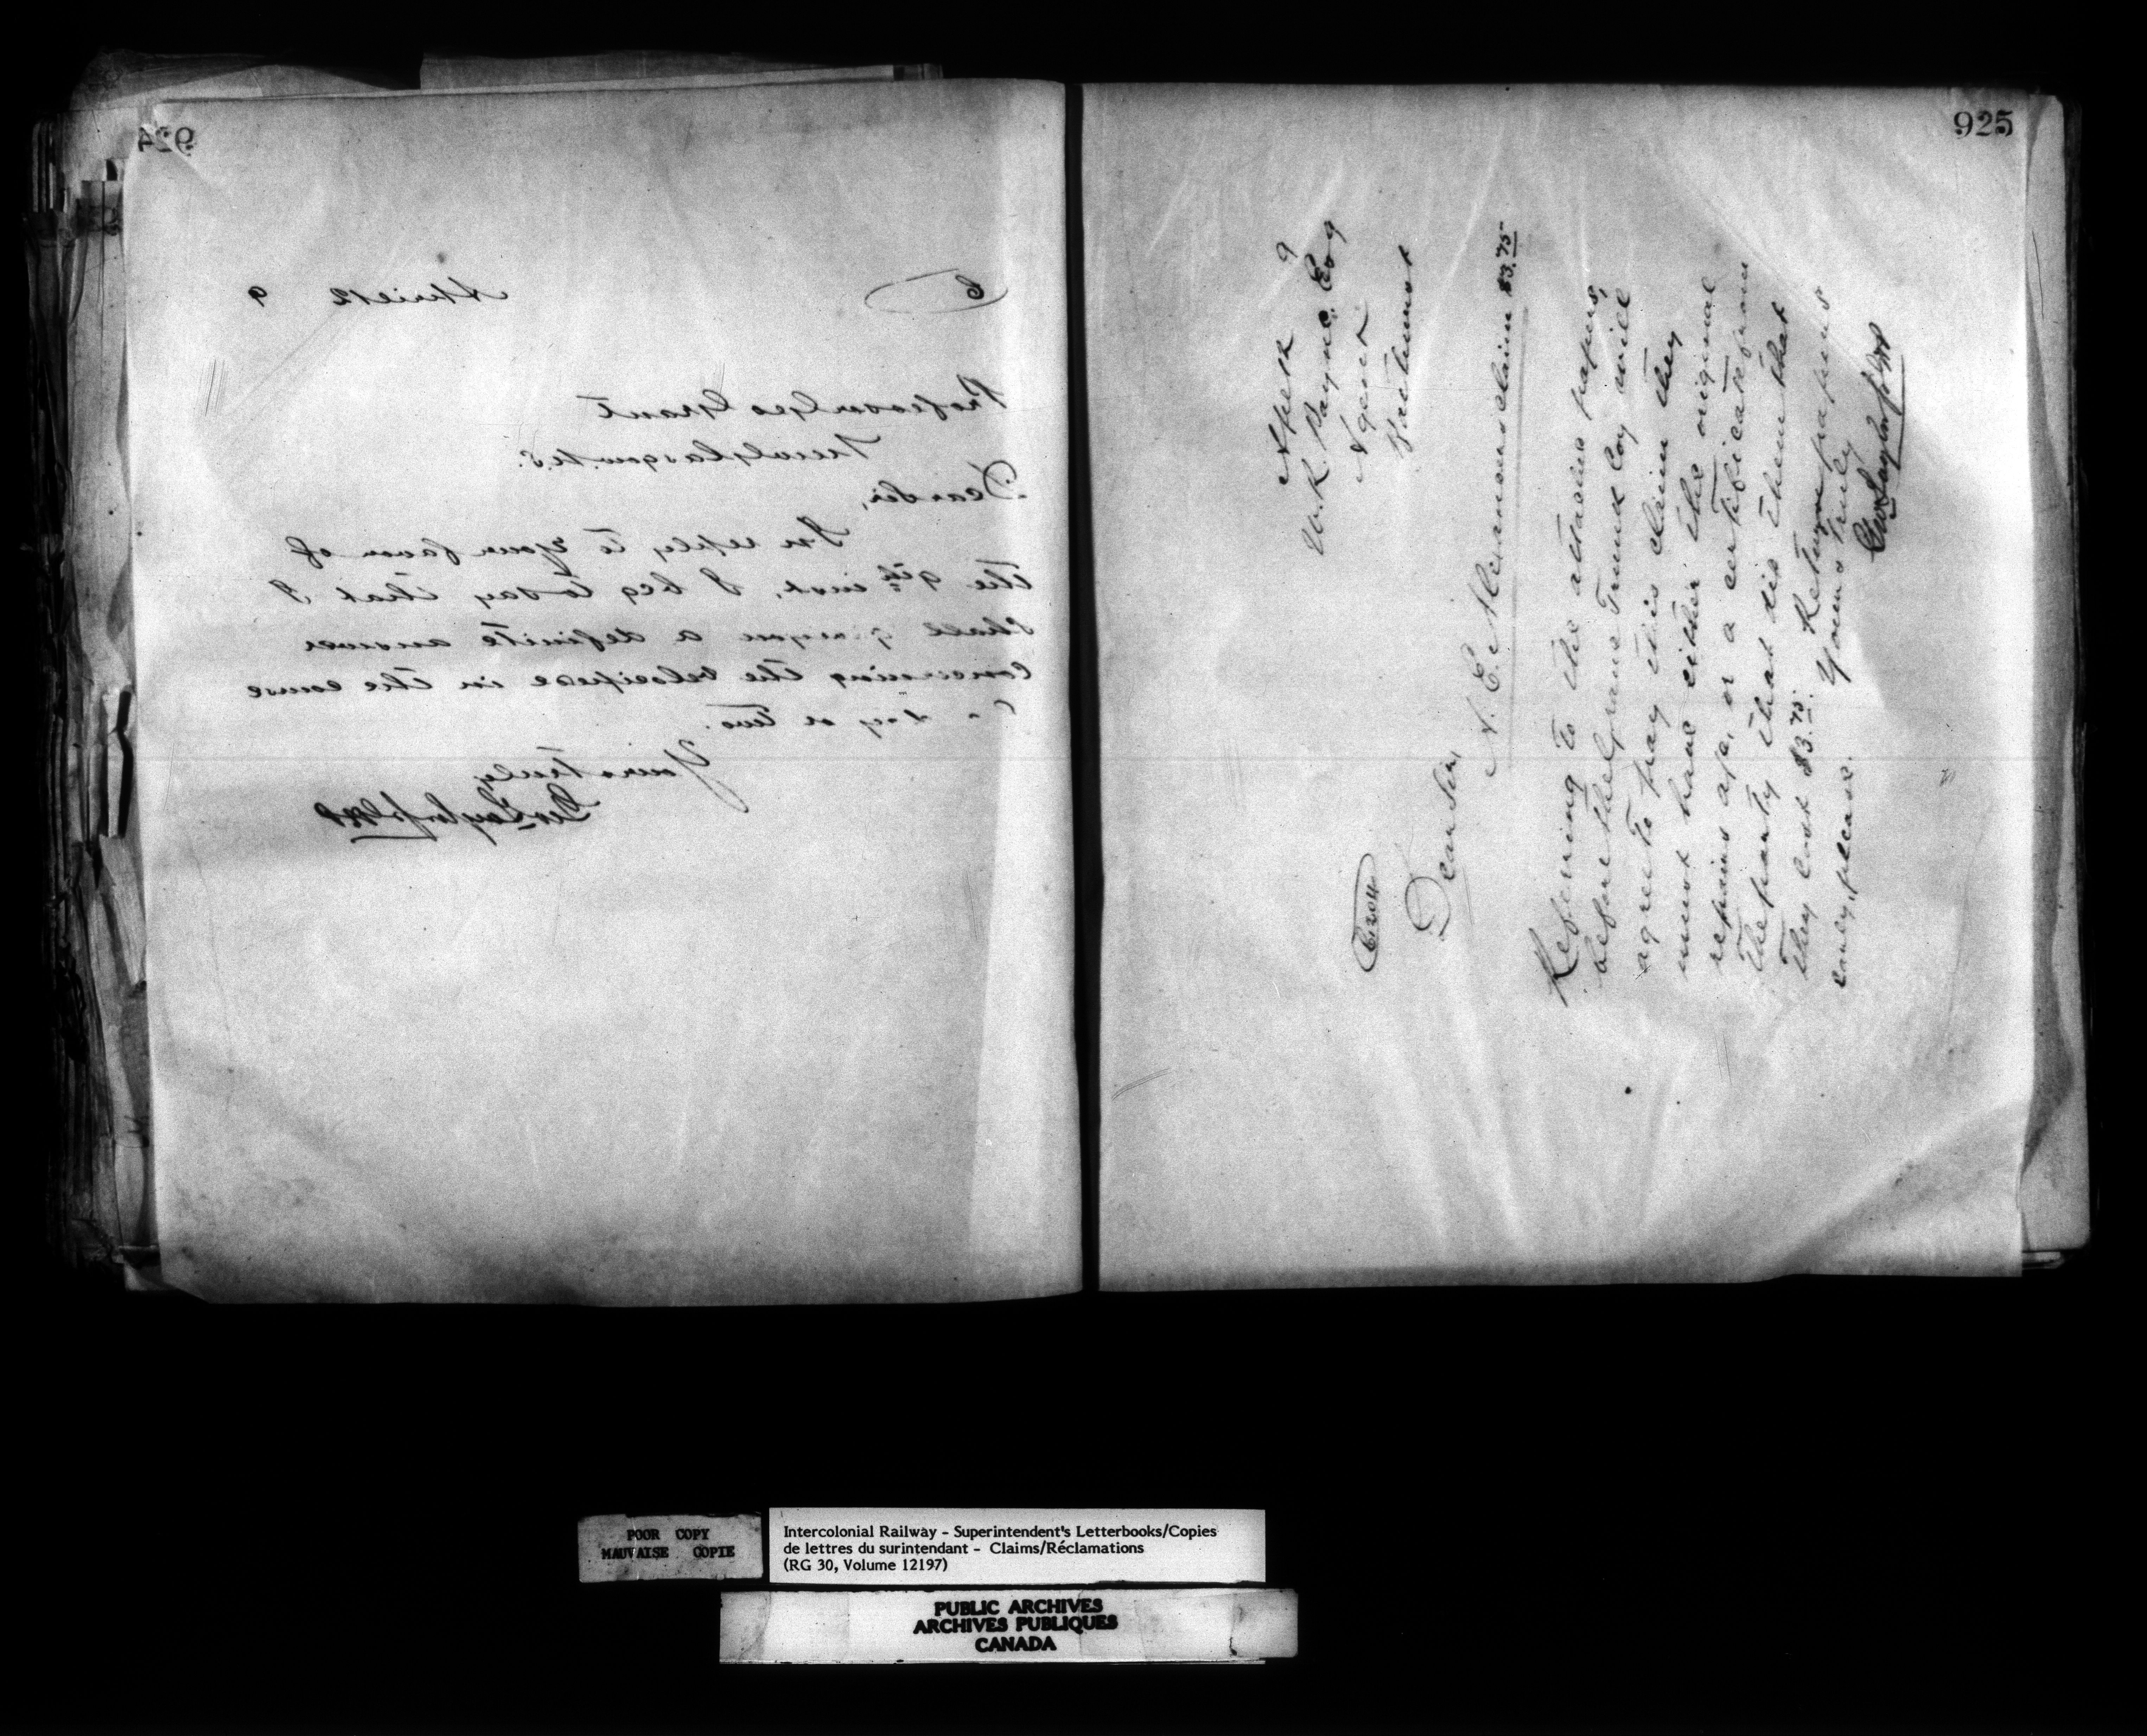 924
C
April 12 9
Professor Geo Grant
New Glasgow N.S.
Dear Sir,
In reply to your favor of
the 9th inst, I beg to say that I
shall give you a definite answer
concerning the velocipede in the course
day or two.
Yours truly
Geo Taylor
925
9
W.K. Payne Esq
Agent
Bathurst
C1204
Dear Sir,
claim $3.75
Referring to the attached papers,
before the Grand Trunk Coy will
agree to pay this claim they
must have either the original
repairs a/c, or a certificate from
the party that did them that
they cost $3.75. Return papers
early, please. Yours truly
Geo Taylor
POOR COPY
MAUVAISE COPIE
Intercolonial Railway - Superintendent's Letterbooks/Copies
de lettres du surintendant - Claims/Réclamations
(RG 30, Volume 12197)
PUBLIC ARCHIVES
ARCHIVES PUBLIQUES
CANADA